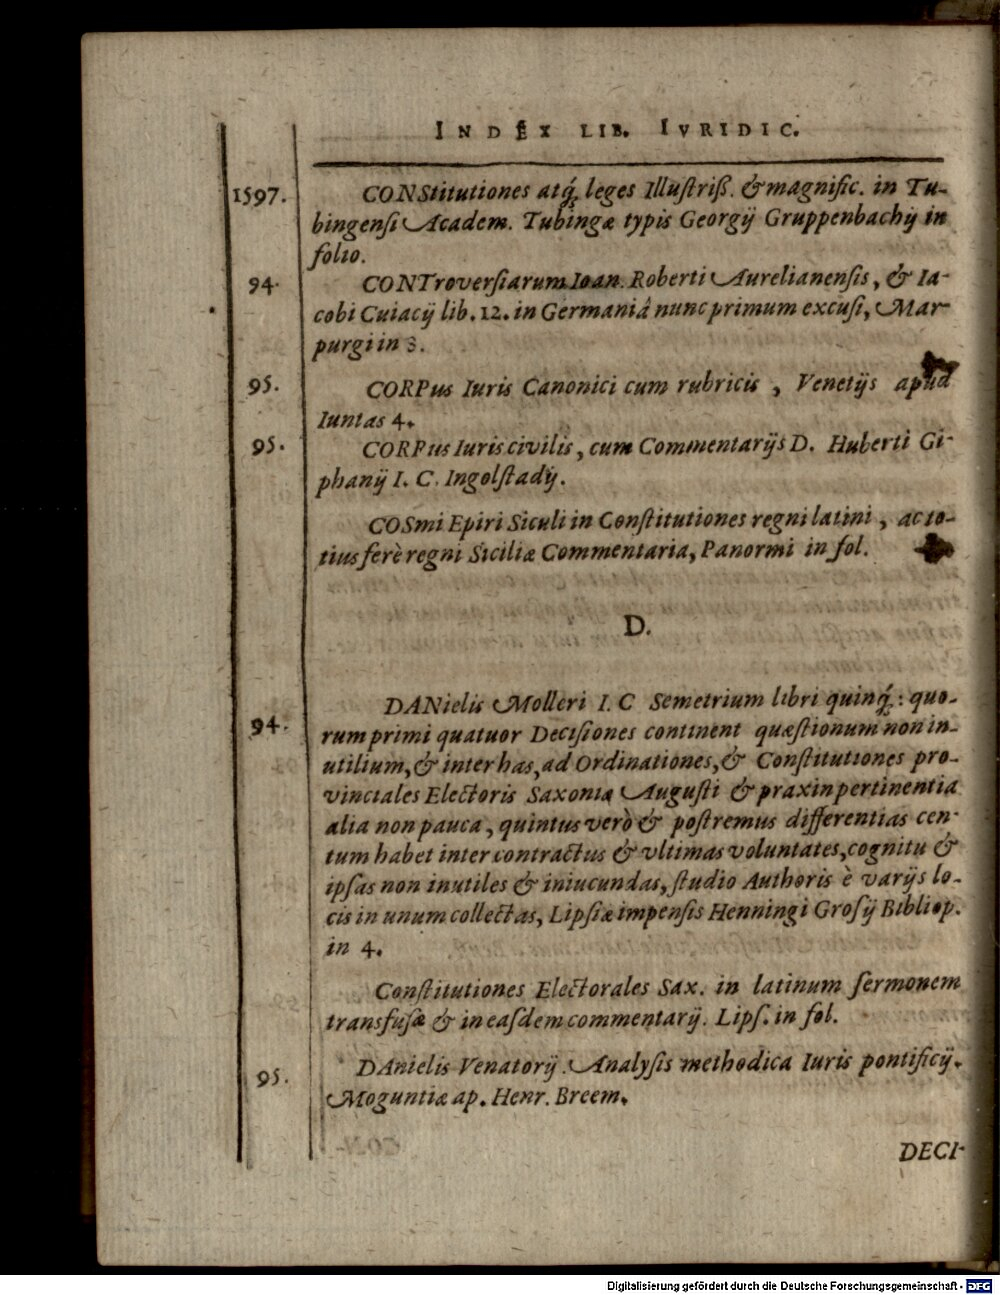 INDEX LIB. IVRIDIC.
1597. CONStitutiones atq́; leges Illuſtriß. & magnific. in Tu-
bingenſi Academ. Tubingæ typis Georgij Gruppenbachij in
folio.
94. CONTroverſiarum Ioan. Roberti Aurelianenſis, & Ia-
cobi Cuiacij lib. 12. in Germaniá nunc primum excuſi, Mar-
purgi in 8.
95. CORPus Iuris Canonici cum rubricis, Venetijs apud
Iuntas 4.
95. CORPus Iuris civilis, cum Commentarijs D. Huberti Gi-
phanij I. C. Ingolſtadij.
COSmi Epiri Siculi in Conſtitutiones regni latini, ac to-
tius ferè regni Siciliæ Commentaria, Panormi in fol.
D.
94. DANielis Molleri I. C Semetrium libri quinq́;: quo-
rum primi quatuor Deciſiones continent quæſtionum non in-
utilium, & inter has, ad Ordinationes, & Conſtitutiones pro-
vinciales Electoris Saxoniæ Auguſti & praxin pertinentia
alia non pauca, quintus verò & poſtremus differentias cen-
tum habet inter contractus & vltimas voluntates, cognitu &
ipſas non inutiles & iniucundas, ſtudio Authoris è varijs lo-
cis in unum collectas, Lipſiæ impenſis Henningi Groſij Bibliop.
in 4.
Conſtitutiones Electorales Sax. in latinum ſermonem
transfuſæ & in eaſdem commentarij. Lipſ. in fol.
95. DAnielis Venatorij. Analyſis methodica Iuris pontificij.
Moguntiæ ap. Henr. Breem.
DECI-
Digitalisierung gefördert durch die Deutsche Forschungsgemeinschaft - DFG